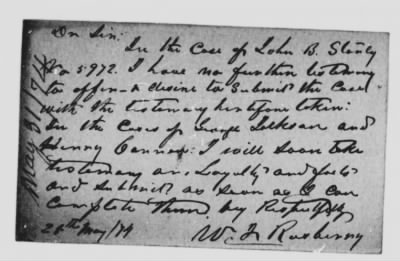 Dr Sir:
In the Case of John B. Stinly
No 5972. I have no further testimony
to offer & desire to Submit the Case
with the testimony heretofore taken:
In the Cases of George Jackson and
Henry Cannon: I will soon take
testimony on Loyalty and facts
and Submit as soon as I can
Complete them. Very Respectfully
26th May/79
W. F.